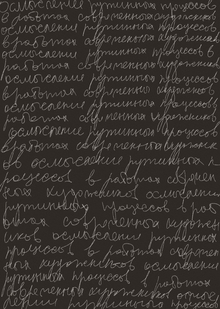 осмысление рутинных процессов
в работах современных художников
осмысление рутинных процессов
в работах современных художников
осмысление рутинных процессов
в работах современных художников
осмысление рутинных процессов
в работах современных художников
осмысление рутинных процессов
работах современных художников
осмысление рутинных процессов
в работах современных художник
ов осмысление рутинных п
роцессов в работах современ
ных художников осмысление
рутинных процессов в работ
ах современных художн
иков осмысление рутинных
процессов в работах современ
ных художников осмысление
рутинных процессов в работах
современных художников осмыс
ление рутинных процессов